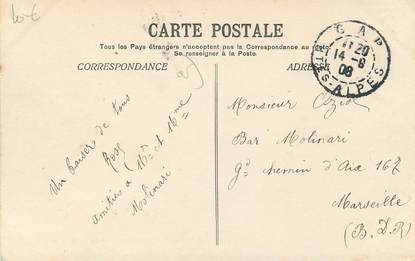 10€
CARTE POSTALE
Tous les Pays étrangers n'acceptent pas la Correspondance au recto.
Se renseigner à la Poste.
CORRESPONDANCE
ADRESSE
GAP
14-8
08
HTES-ALPES
Un baiser de tous
Rose
amitiés à Mr et Mme
Molinari
Monsieur
Bar Molinari
gd chemin d'Aix 167
Marseille
(B.D.R)